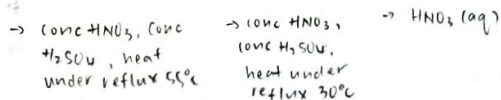 → conc HNO3, conc
H2SO4, heat
under reflux 55°C
→ conc HNO3,
conc H2SO4,
heat under
reflux 30°C
→ HNO3 (aq)